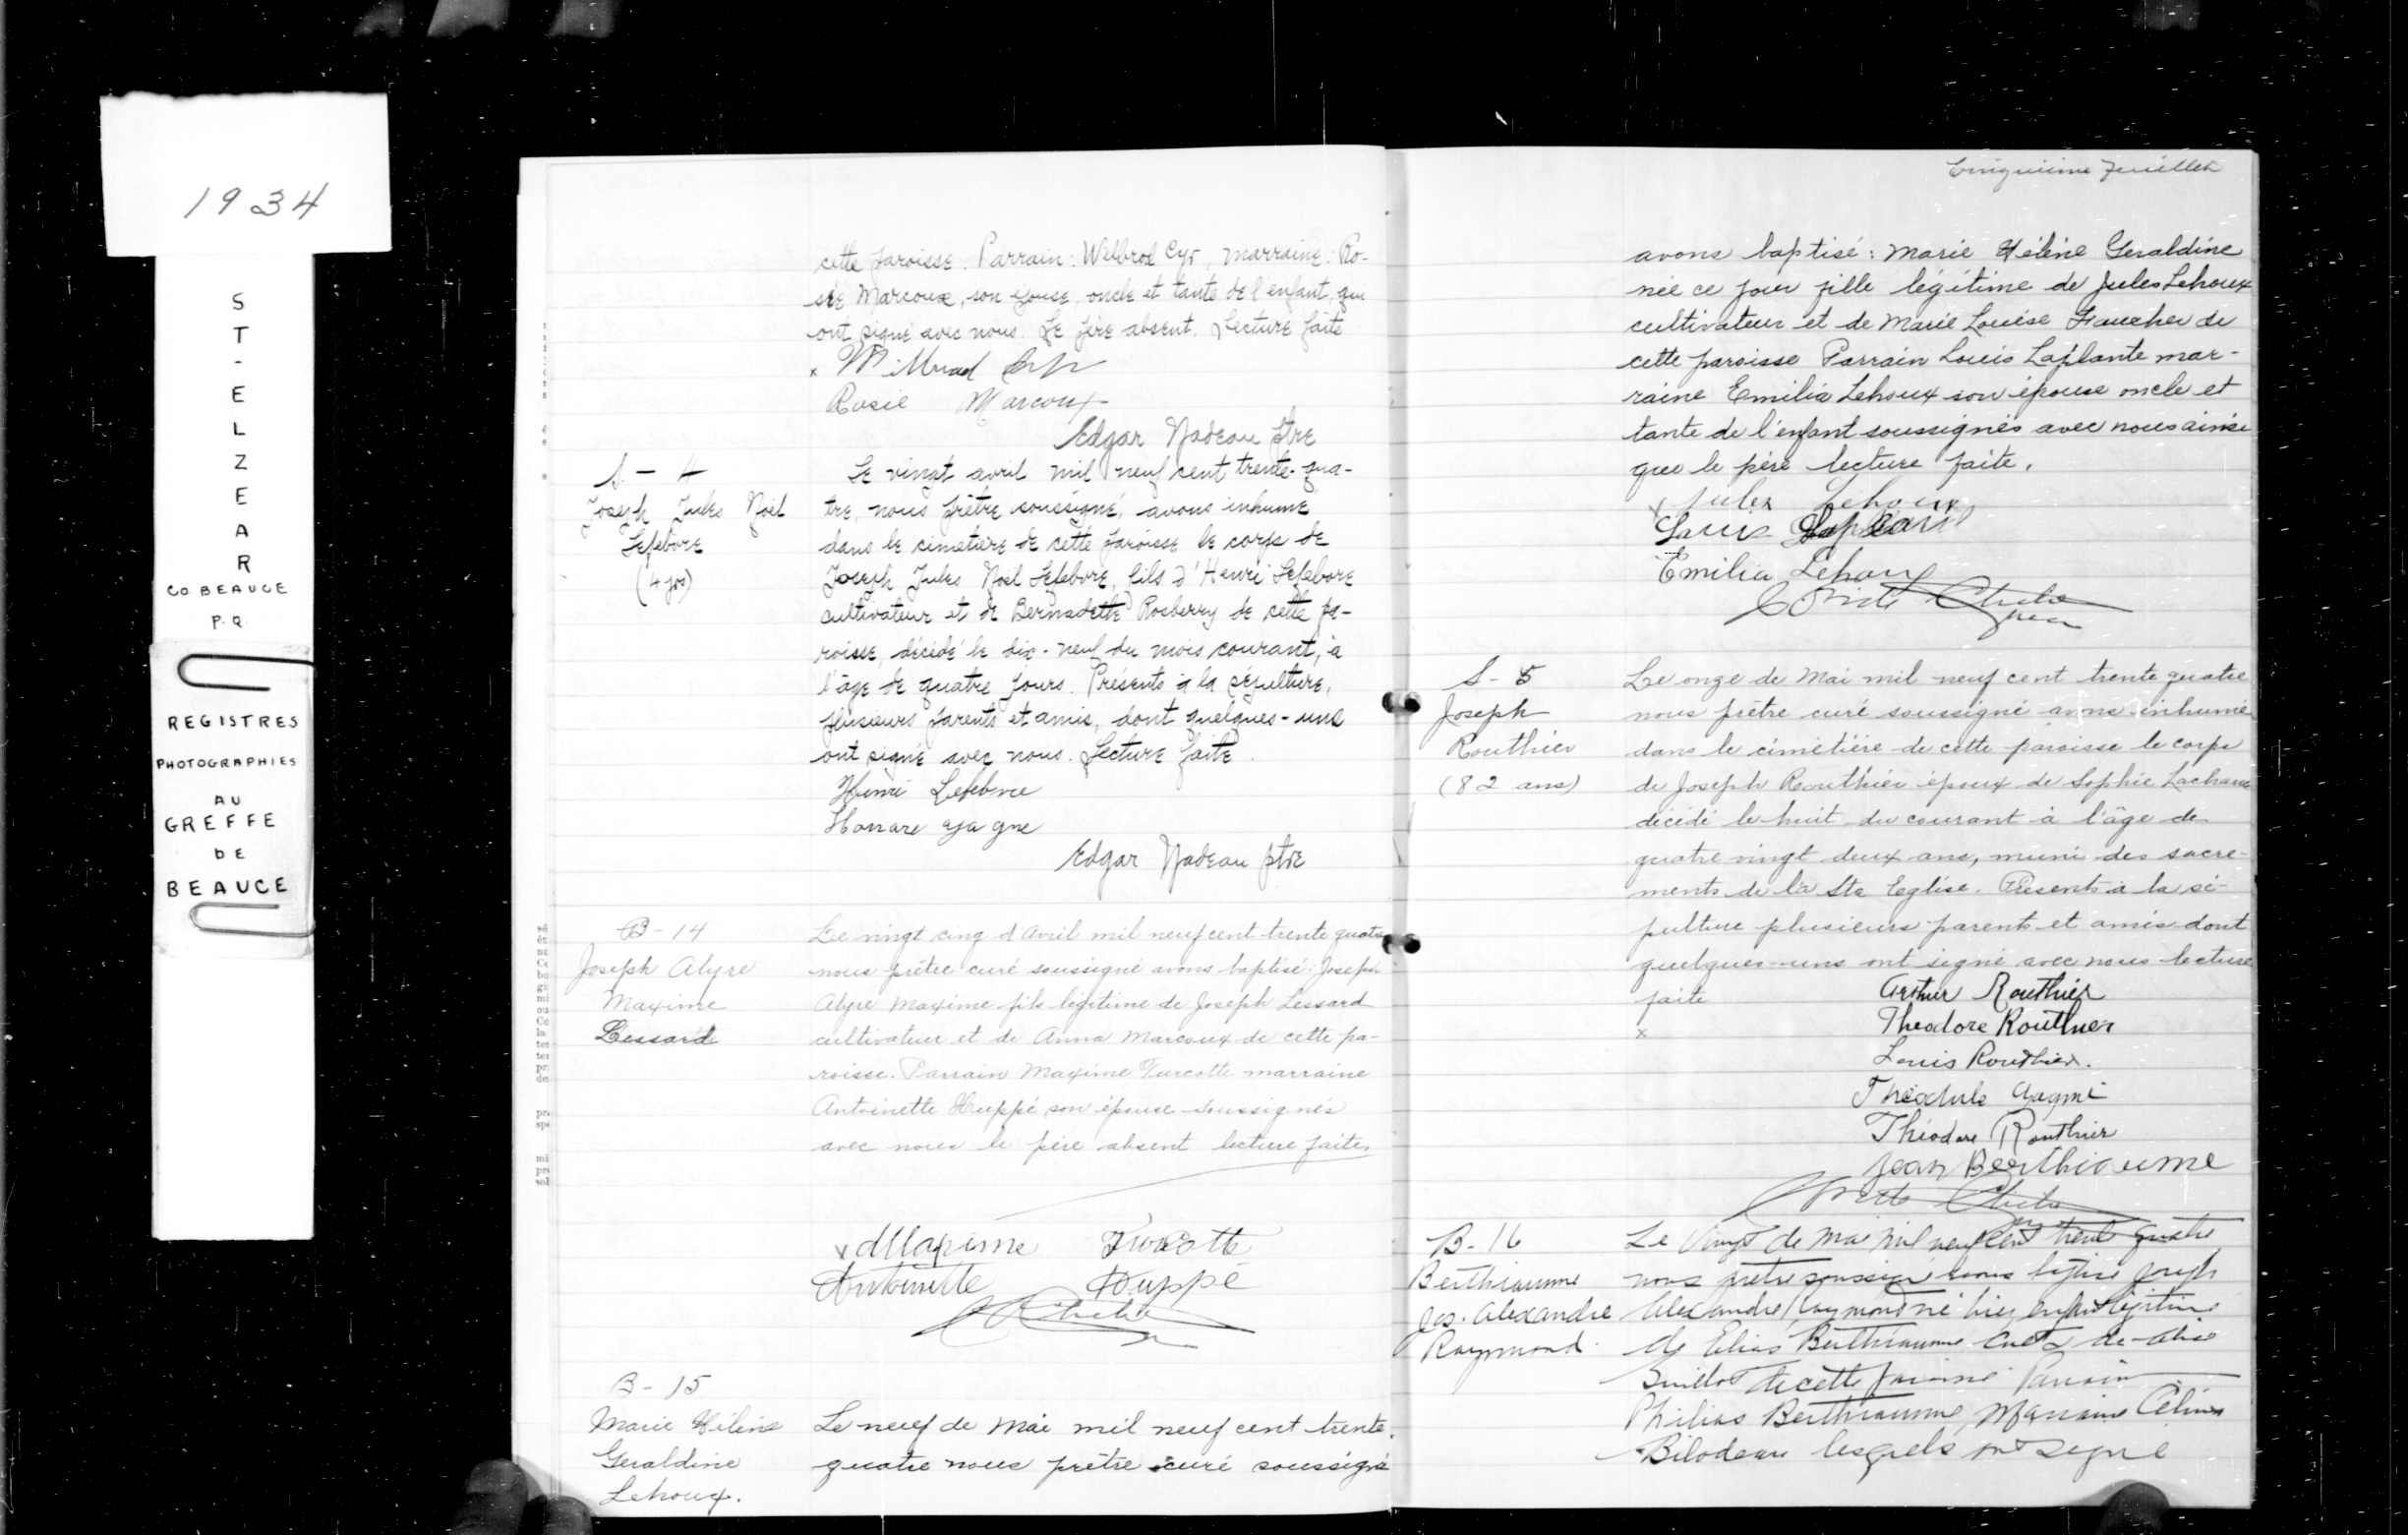 1934
ST-ELZEAR
CO BEAUCE
P.Q
REGISTRES
PHOTOGRAPHIES
AU
GREFFE
DE
BEAUCE
cette paroisse. Parrain: Wilbrod Cyr, marraine: Ro-
sée Marcoux, son épouse, oncle et tante de l'enfant, qui
ont signé avec nous. Le père absent. Lecture faite
x Cyr
Rosie Marcoux
Edgar Nadeau ptre
S - 4
Joseph Jules Noël
Lefebvre
(4 jrs)
Le vingt avril mil neuf cent trente-qua-
tre, nous prêtre soussigné, avons inhumé
dans le cimetière de cette paroisse le corps de
Joseph Jules Noël Lefebvre, fils d'Henri Lefebvre
cultivateur et de Bernadette Rosberry de cette pa-
roisse, décédé le dix-neuf du mois courant, à
l'âge de quatre jours. Présents à la sépulture,
plusieurs parents et amis, dont quelques-uns
ont signé avec nous. Lecture faite.
Henri Lefebvre
Edgar Nadeau ptre
B - 14
Joseph Alyre
Maxime
Lessard
Le vingt cinq d'Avril mil neuf cent trente quatre
nous prêtre curé soussigné avons baptisé: Joseph
Alyre Maxime fils légitime de Joseph Lessard
cultivateur et de Anna Marcoux de cette pa-
roisse. Parrain Maxime Turcotte marraine
Antoinette Huppé son épouse soussignés
avec nous le père absent lecture faite.
x Maxime Turcotte
Antoinette Huppé
B - 15
Marie Hélène
Geraldine
Lehoux.
Le neuf de Mai mil neuf cent trente.
quatre nous prêtre curé soussigné
Cinquième feuillet
avons baptisé: Marie Hélène Geraldine
née ce jour fille légitime de Jules Lehoux
cultivateur et de Marie Louise Faucher de
cette paroisse Parrain Louis Laplante mar-
raine Emilia Lehoux son épouse oncle et
tante de l'enfant soussignés avec nous ainsi
que le père lecture faite.
x Jules Lehoux
Louis
Emilia Lehoux
S - 5
Joseph
Routhier
(82 ans)
Le onze de Mai mil neuf cent trente quatre
nous prêtre curé soussigné avons inhumé
dans le cimetière de cette paroisse le corps
de Joseph Routhier époux de Sophie Lachance
décédé le huit du courant à l'âge de
quatre vingt deux ans, muni des sacre-
ments de la Ste Eglise. Présents à la sé-
pulture plusieurs parents et amis dont
quelques-uns ont signé avec nous lecture
faite
x
Arthur Routhier
Theodore Routhier
Louis Routhier.
Théodule Gagné
Théodore Routhier
Jean Berthiaume
B - 16
Berthiaume
Jos. Alexandre
Raymond.
Le Vingt de Mai mil neuf cent trente quatre
nous prêtre soussigné avons baptisé Joseph
Alexandre Raymond né hier, enfant légitime
de Elias Berthiaume Cult & de
de cette paroisse Parrain
Philias Berthiaume, Marraine Célina
Bilodeau lesquels ont signé